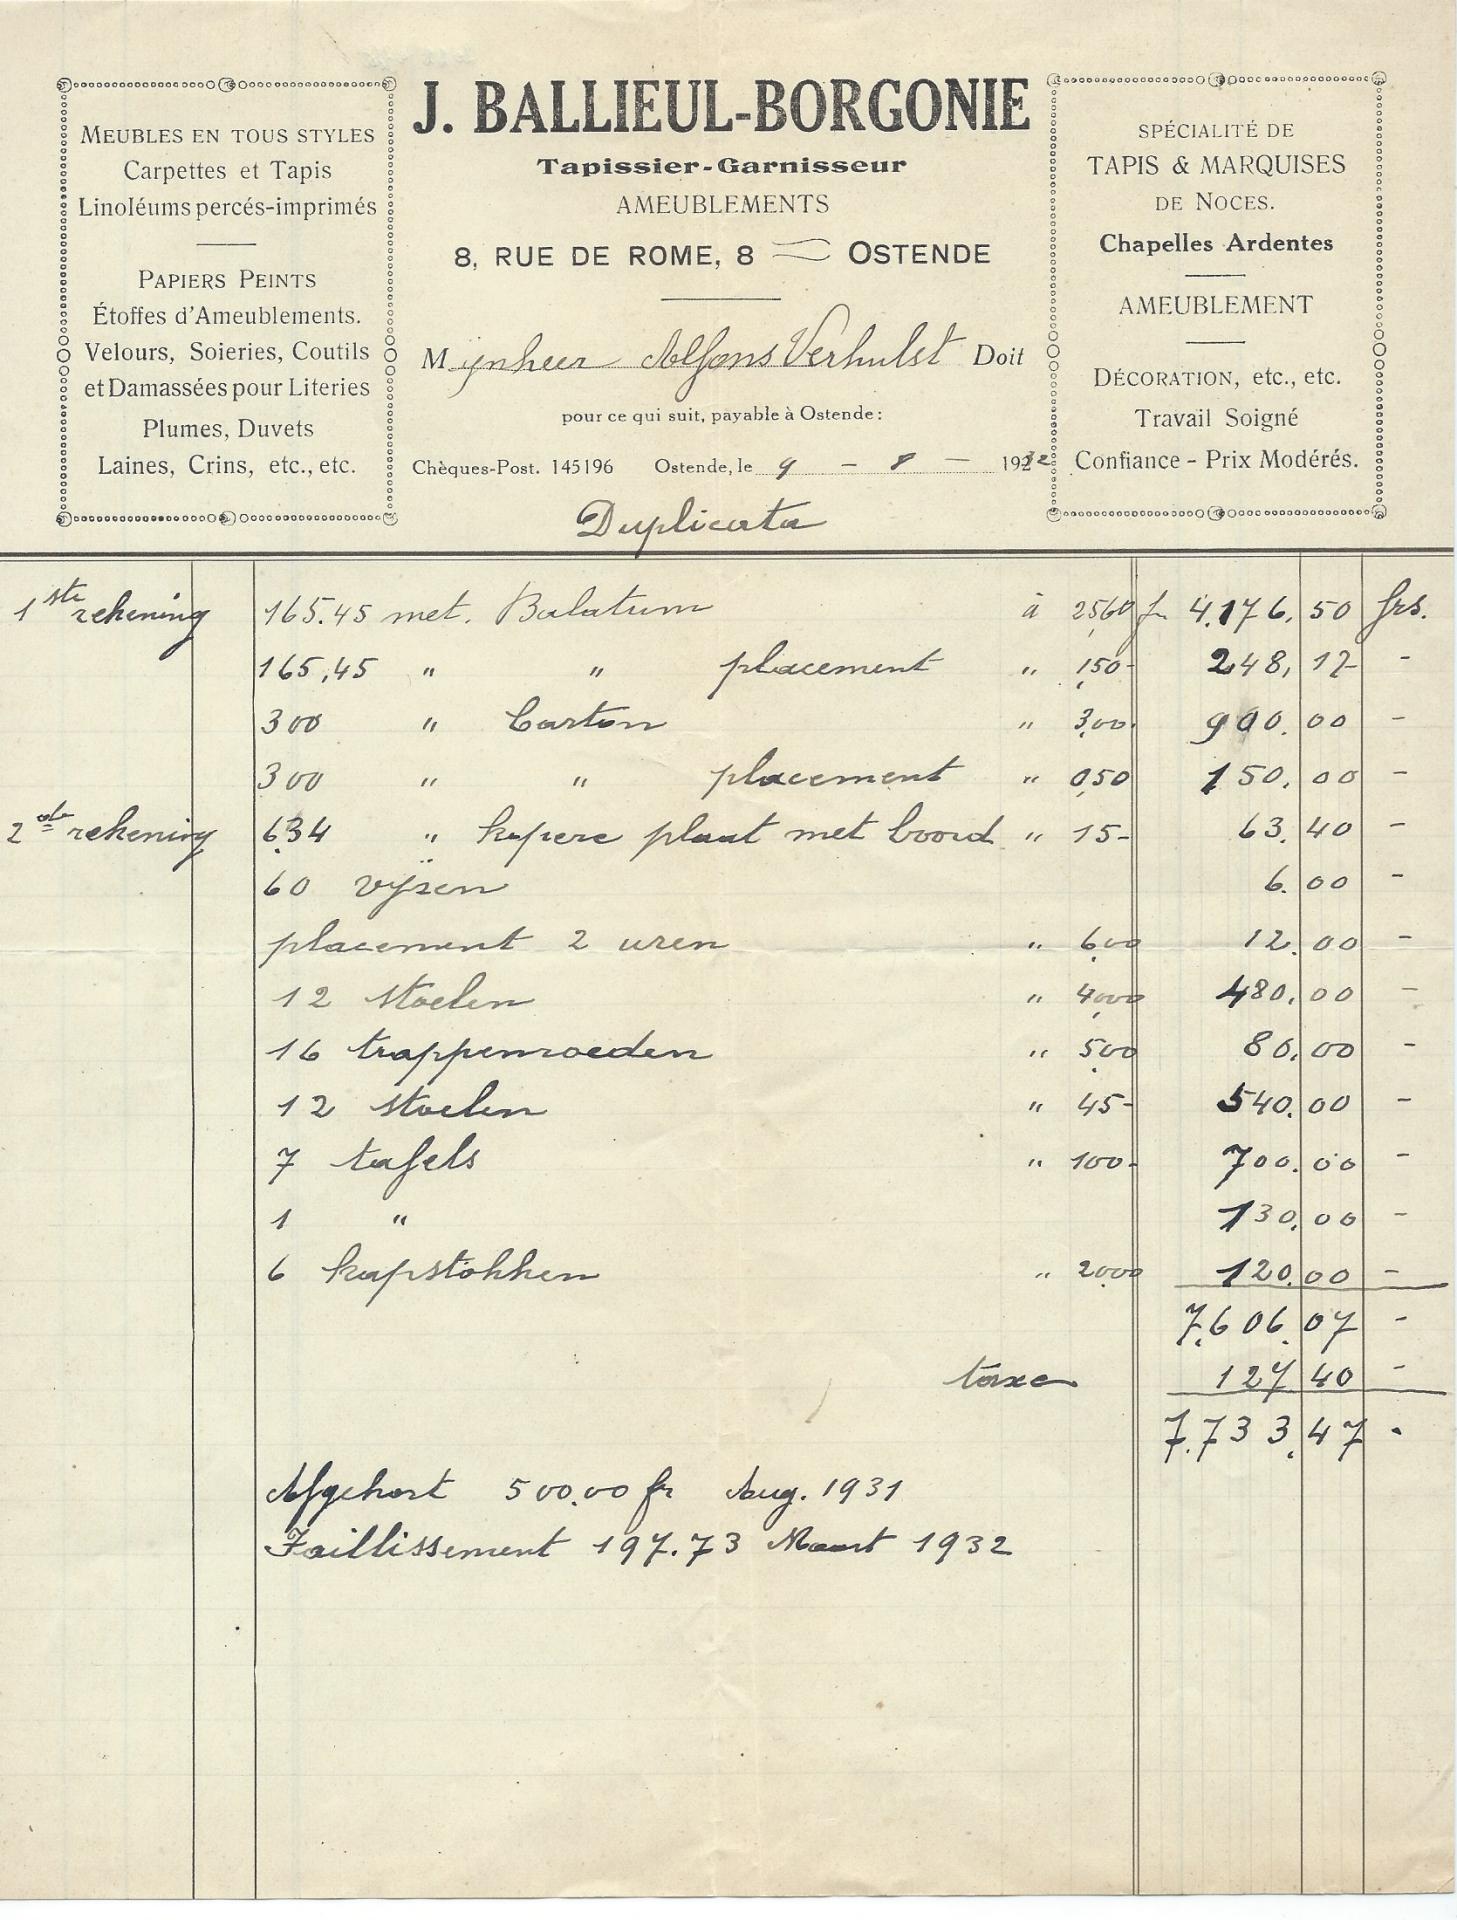 MEUBLES EN TOUS STYLES
Carpettes et Tapis
Linoléums percés-imprimés
PAPIERS PEINTS
Étoffes d'Ameublements.
Velours, Soieries, Coutils
et Damassées pour Literies
Plumes, Duvets
Laines, Crins, etc., etc.
J. BALLIEUL-BORGONIE
Tapissier-Garnisseur
AMEUBLEMENTS
8, RUE DE ROME, 8 OSTENDE
Mynheer Alfons Verhulst Doit
pour ce qui suit, payable à Ostende:
Chèques-Post. 145196 Ostende, le 9 - 8 - 1932
Duplicata
SPÉCIALITÉ DE
TAPIS & MARQUISES
DE NOCES.
Chapelles Ardentes
AMEUBLEMENT
DÉCORATION, etc., etc.
Travail Soigné
Confiance - Prix Modérés.
1ste rekening 165.45 met. Balatum à 25,60 fr 4.176.50 frs.
165,45 " " placement " 1,50- 248,17 -
300 " Carton " 3,00 900.00 -
300 " " placement " 0,50 150.00 -
2de rekening 6.34 " kopere plaat met boord " 15- 63.40 -
60 vijzen 6.00 -
placement 2 uren " 6,00 12.00 -
12 stoelen " 40,00 480.00 -
16 trappenroeden " 5,00 80,00 -
12 stoelen " 45- 540.00 -
7 tafels " 100- 700.00 -
1 " 130,00 -
6 kapstokken " 20,00 120.00 -
7.606.07 -
taxe 127 40 -
7.733.47 -
Afgekort 500.00 fr Aug. 1931
Faillissement 197.73 Maart 1932